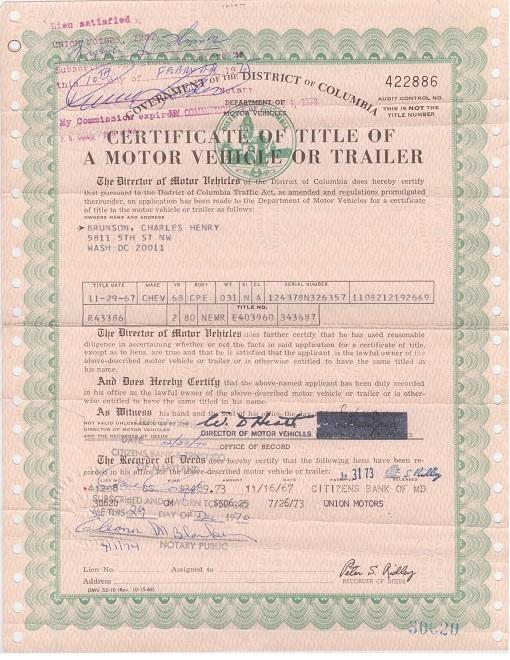 Lien satisfied
UNION MOTORS, INC.
this 10th day of
Notary
My Commission expires
GOVERNMENT OF THE DISTRICT OF COLUMBIA
DEPARTMENT OF
MOTOR VEHICLES
422886
AUDIT CONTROL NO.
THIS IS NOT THE
TITLE NUMBER
CERTIFICATE OF TITLE OF
A MOTOR VEHICLE OR TRAILER
The Director of Motor Vehicles of the District of Columbia does hereby certify
that pursuant to the District of Columbia Traffic Act, as amended and regulations promulgated
thereunder, an application has been made to the Department of Motor Vehicles for a certificate
of title to the motor vehicle or trailer as follows:
OWNERS NAME AND ADDRESS
BRUNSON, CHARLES HENRY
5811 5TH ST NW
WASH DC 20011
TITLE DATE MAKE YR BODY WT. KI CL SERIAL NUMBER
11-29-67 CHEV 68 CPE 031 N A 124378N326357 1108212192669
TITLE NO.
R43386 2 80 NEWR E403960 343687
The Director of Motor Vehicles does further certify that he has used reasonable
diligence in ascertaining whether or not the facts in said application for a certificate of title,
except as to liens, are true and that he is satisfied that the applicant is the lawful owner of the
above-described motor vehicle or trailer or is otherwise entitled to have the same titled in
his name.
And Does Hereby Certify that the above-named applicant has been duly recorded
in his office as the lawful owner of the above-described motor vehicle or trailer or is other-
wise entitled to have the same titled in his name.
As Witness his hand and the seal of his office the day
NOT VALID UNLESS COUNTERSIGNED BY THE
DIRECTOR OF MOTOR VEHICLES
AND THE RECORDER OF DEEDS
W. D. Heath
DIRECTOR OF MOTOR VEHICLES
DATE
OFFICE OF RECORD
CITIZENS BANK
OF MARYLAND
The Recorder of Deeds does hereby certify that the following liens have been re-
corded in his office for the above-described motor vehicle or trailer:
31 73
KIND AMOUNT DATE RELEASED
41208 CS 11/16/67 CITIZENS BANK OF MD
30620 CM $506.25 7/26/73 UNION MOTORS
SUBSCRIBED AND SWORN TO BEFORE
ME THIS 29 DAY OF Dec 1970
NOTARY PUBLIC
Lien No. Assigned to
Peter S. Ridley
Address
RECORDER OF DEEDS
DMV 52-10 (Rev. 10-15-66)
30620